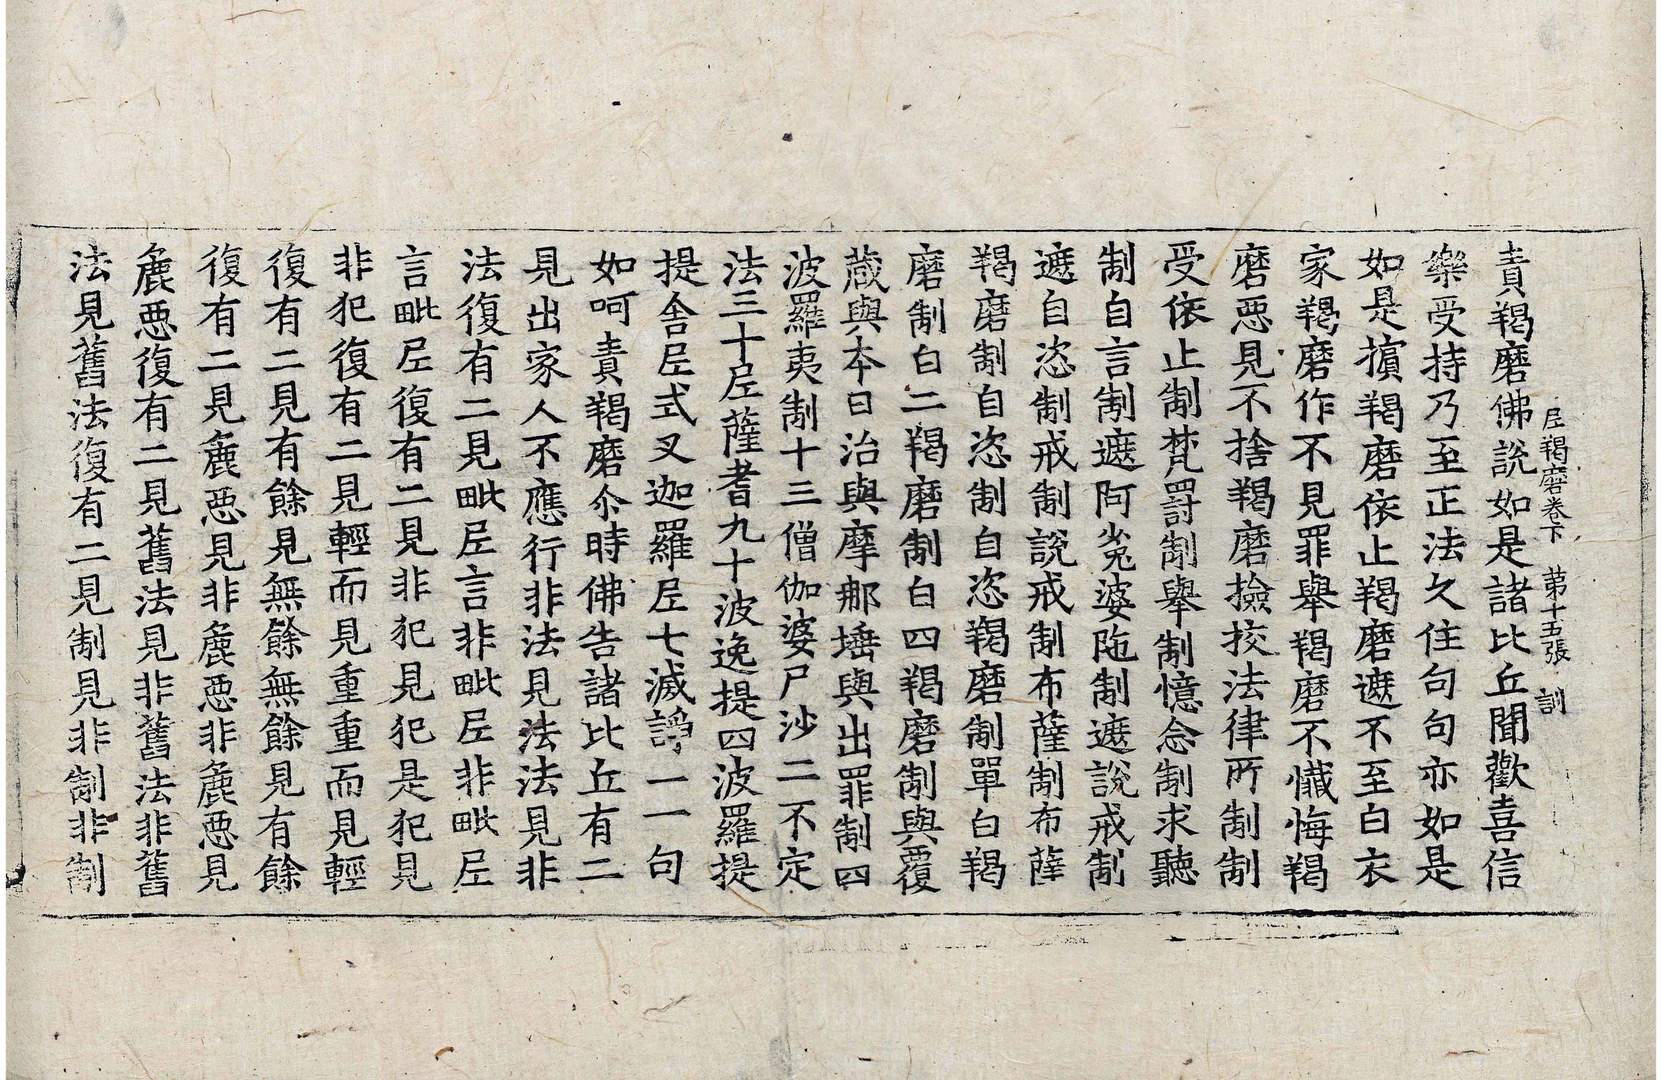 尼羯磨卷下 第十五張 訓
責羯磨佛說如是諸比丘聞歡喜信
樂受持乃至正法久住句句亦如是
如是擯羯磨依止羯磨遮不至白衣
家羯磨作不見罪舉羯磨不懺悔羯
磨惡見不捨羯磨撿挍法律所制制
受依止制梵罰制舉制憶念制求聽
制自言制遮阿㝹婆陁制遮說戒制
遮自恣制戒制說戒制布薩制布薩
羯磨制自恣制自恣羯磨制單白羯
磨制白二羯磨制白四羯磨制與覆
藏與本日治與摩那埵與出罪制四
波羅夷制十三僧伽婆尸沙二不定
法三十尼薩耆九十波逸提四波羅提
提舍尼式叉迦羅尼七滅諍一一句
如呵責羯磨尒時佛告諸比丘有二
見出家人不應行非法見法法見非
法復有二見毗尼言非毗尼非毗尼
言毗尼復有二見非犯見犯是犯見
非犯復有二見輕而見重重而見輕
復有二見有餘見無餘無餘見有餘
復有二見麁惡見非麁惡非麁惡見
麁惡復有二見舊法見非舊法非舊
法見舊法復有二見制見非制非制